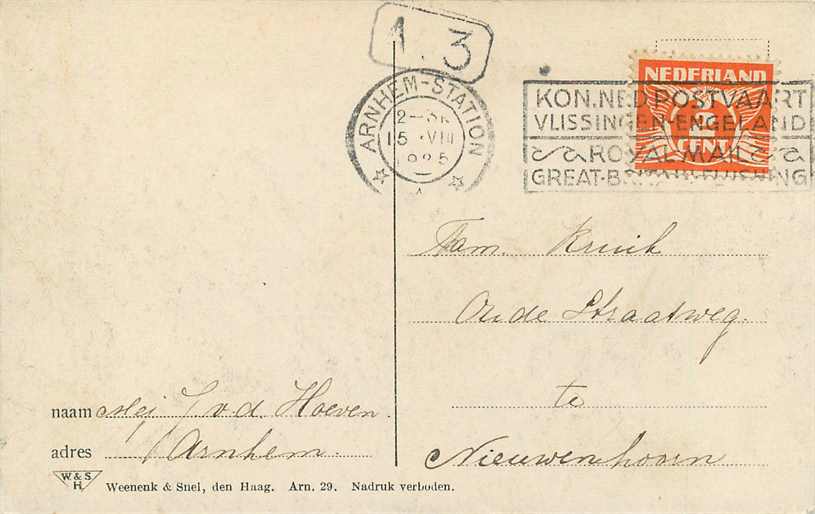 1 3
ARNHEM-STATION
15 VIII
1925
NEDERLAND
CENT
KON. NED. POSTVAART
VLISSINGEN-ENGELAND
ROYAL-MAIL
GREAT-B
Fam. Kruik
Oude Straatweg.
te
Nieuwenhoorn
naam Mej J v. d. Hoeven
adres Arnhem.
W. & S.
H.
Weenenk & Snel, den Haag. Arn. 29. Nadruk verboden.